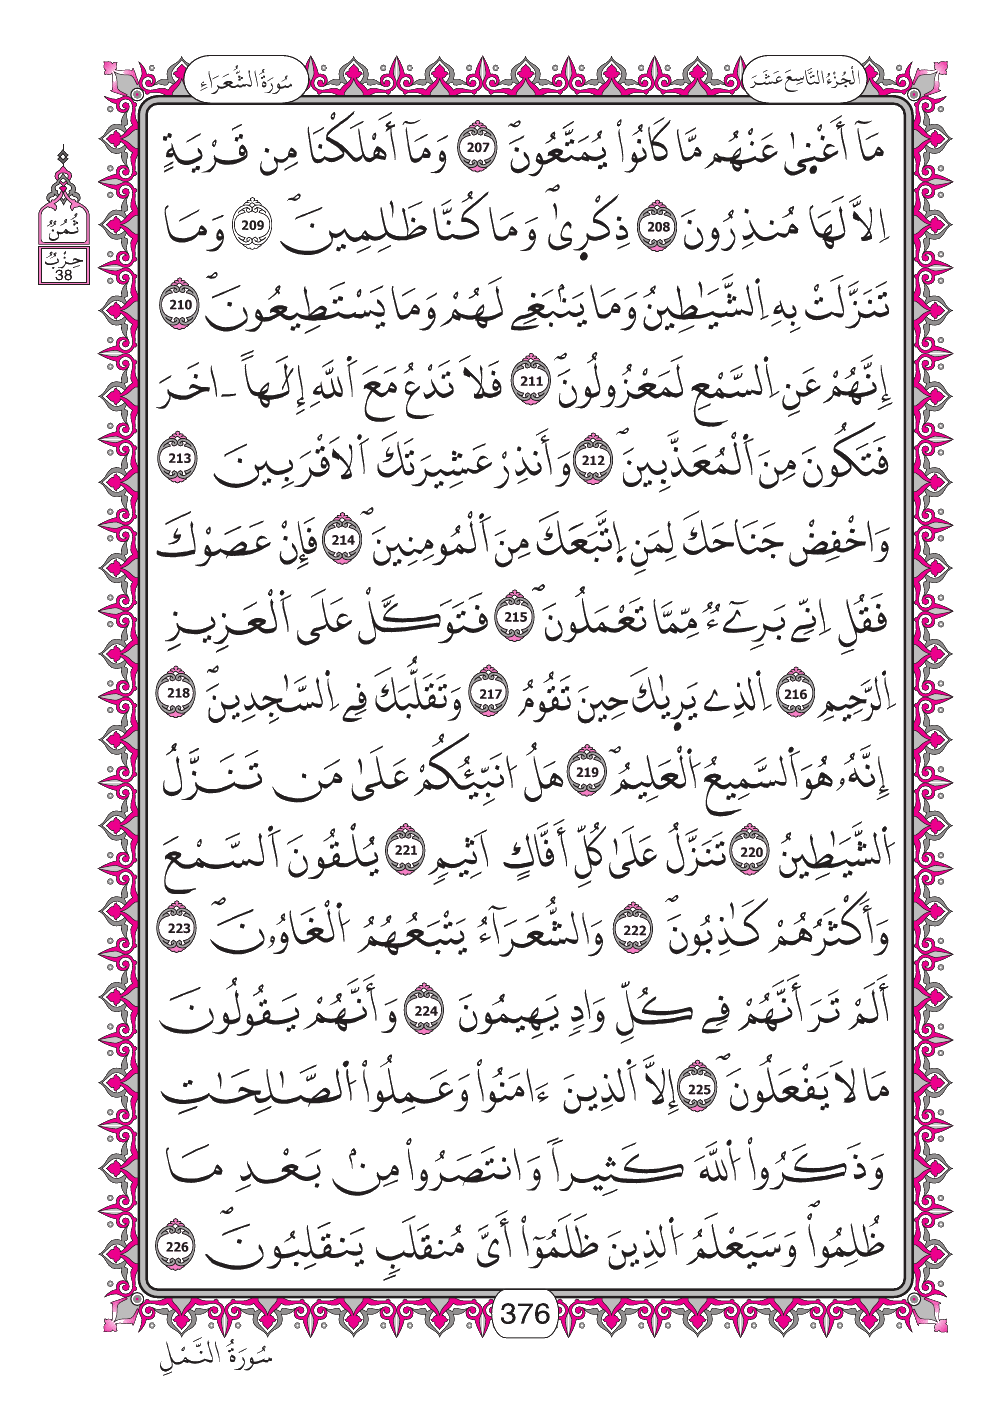 سُورَةُ الشُّعَرَاءِ
الْجُزْءُ التَّاسِعَ عَشَرَ
ثُمُنُ
حِزْبُ
38
مَآ أَغْن۪ىٰ عَنْهُم مَّا كَانُواْ يُمَتَّعُونَۖ 207 وَمَآ أَهْلَكْنَا مِن قَرْيَةٍ
اِلاَّ لَهَا مُنذِرُونَ 208 ذِكْر۪ىٰۖ وَمَا كُنَّا ظَٰلِمِينَۖ 209 وَمَا
تَنَزَّلَتْ بِهِ اِ۬لشَّيَٰطِينُ وَمَا يَنۢبَغِے لَهُمْ وَمَا يَسْتَطِيعُونَۖ 210
إِنَّهُمْ عَنِ اِ۬لسَّمْعِ لَمَعْزُولُونَۖ 211 فَلاَ تَدْعُ مَعَ اَ۬للَّهِ إِلَٰهاً ـ اخَرَ
فَتَكُونَ مِنَ اَ۬لْمُعَذَّبِينَۖ 212 وَأَنذِرْ عَشِيرَتَكَ اَ۬لاَقْرَبِينَ 213
وَاخْفِضْ جَنَاحَكَ لِمَنِ اِ۪تَّبَعَكَ مِنَ اَ۬لْمُومِنِينَۖ 214 فَإِنْ عَصَوْكَ
فَقُلِ اِنِّے بَرِےٓءٌ مِّمَّا تَعْمَلُونَۖ 215 فَتَوَكَّلْ عَلَى اَ۬لْعَزِيزِ
اِ۬لرَّحِيمِ 216 اِ۬لذِے يَر۪يٰكَ حِينَ تَقُومُ 217 وَتَقَلُّبَكَ فِے اِ۬لسَّٰجِدِينَۖ 218
إِنَّهُۥ هُوَ اَ۬لسَّمِيعُ اُ۬لْعَلِيمُۖ 219 هَلُ ا۟نَبِّئُكُمْ عَلَىٰ مَن تَنَزَّلُ
اُ۬لشَّيَٰطِينُ 220 تَنَزَّلُ عَلَىٰ كُلِّ أَفَّاكٍ اَثِيمٍ 221 يُلْقُونَ اَ۬لسَّمْعَ
وَأَكْثَرُهُمْ كَٰذِبُونَۖ 222 وَالشُّعَرَآءُ يَتْبَعُهُمُ اُ۬لْغَاوُۥنَۖ 223
أَلَمْ تَرَ أَنَّهُمْ فِے كُلِّ وَادٍ يَهِيمُونَ 224 وَأَنَّهُمْ يَقُولُونَ
مَا لاَ يَفْعَلُونَۖ 225 إِلاَّ اَ۬لذِينَ ءَامَنُواْ وَعَمِلُواْ اُ۬لصَّٰلِحَٰتِ
وَذَكَرُواْ اُ۬للَّهَ كَثِيراًۖ وَانتَصَرُواْ مِنۢ بَعْدِ مَا
ظُلِمُواْۖ وَسَيَعْلَمُ اُ۬لذِينَ ظَلَمُوٓاْ أَيَّ مُنقَلَبٍ يَنقَلِبُونَۖ 226
376
سُورَةُ النَّمْلِ